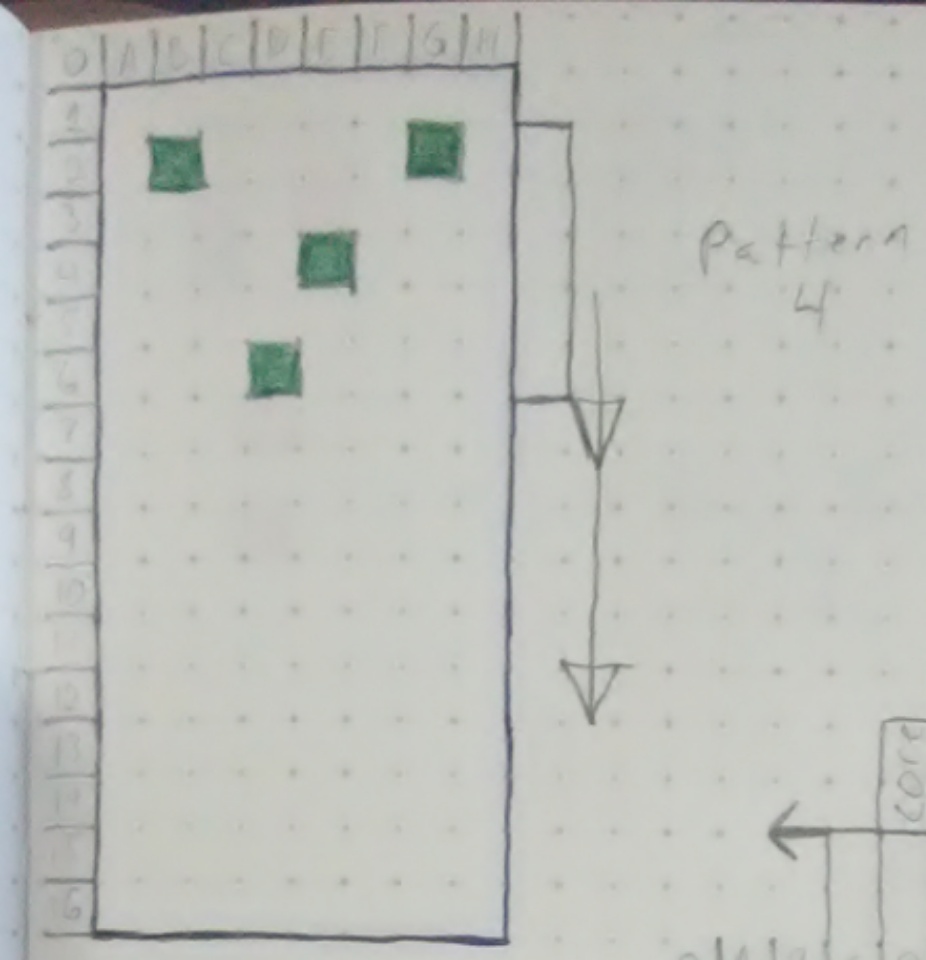 0 A B C D E F G H
1
2
3
4
5
6
7
8
9
10
12
13
14
16
Pattern
4
core